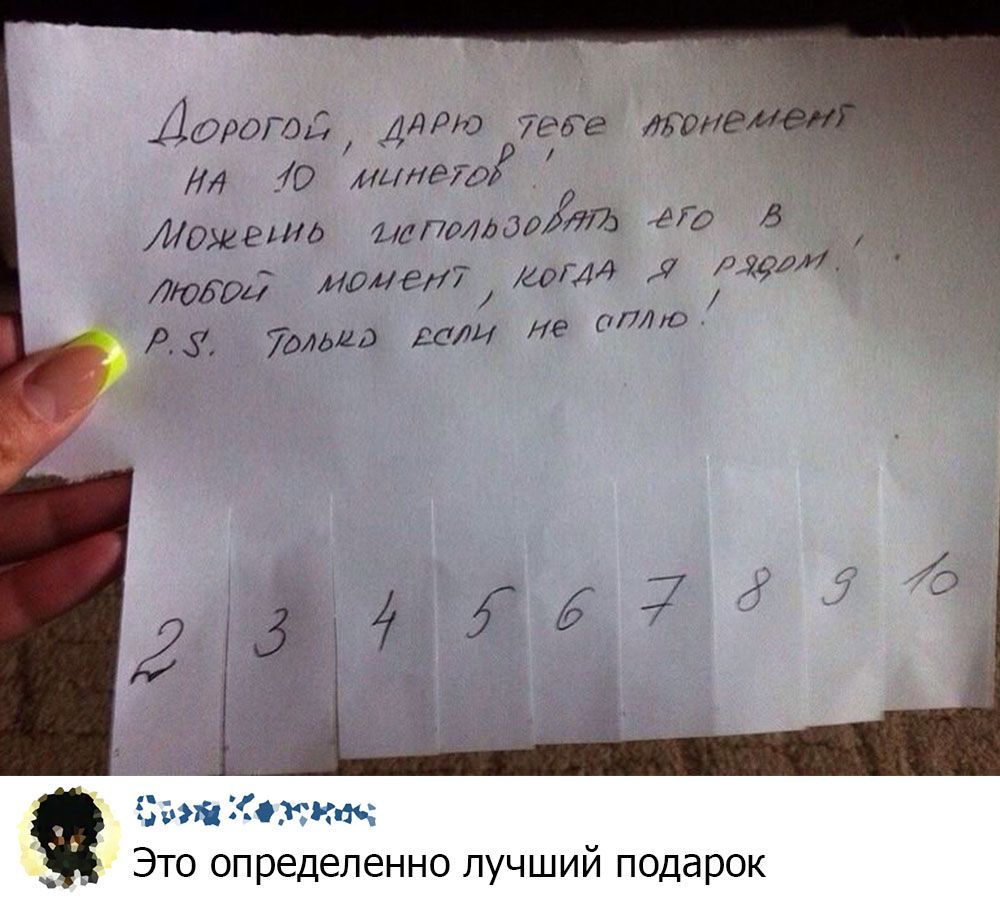 Дорогой, дарю тебе абонемент
на 10 минетов!
Можешь использовать его в
любой момент, когда я рядом!
P.S. Только если не сплю!
2 3 4 5 6 7 8 9 10
Это определенно лучший подарок